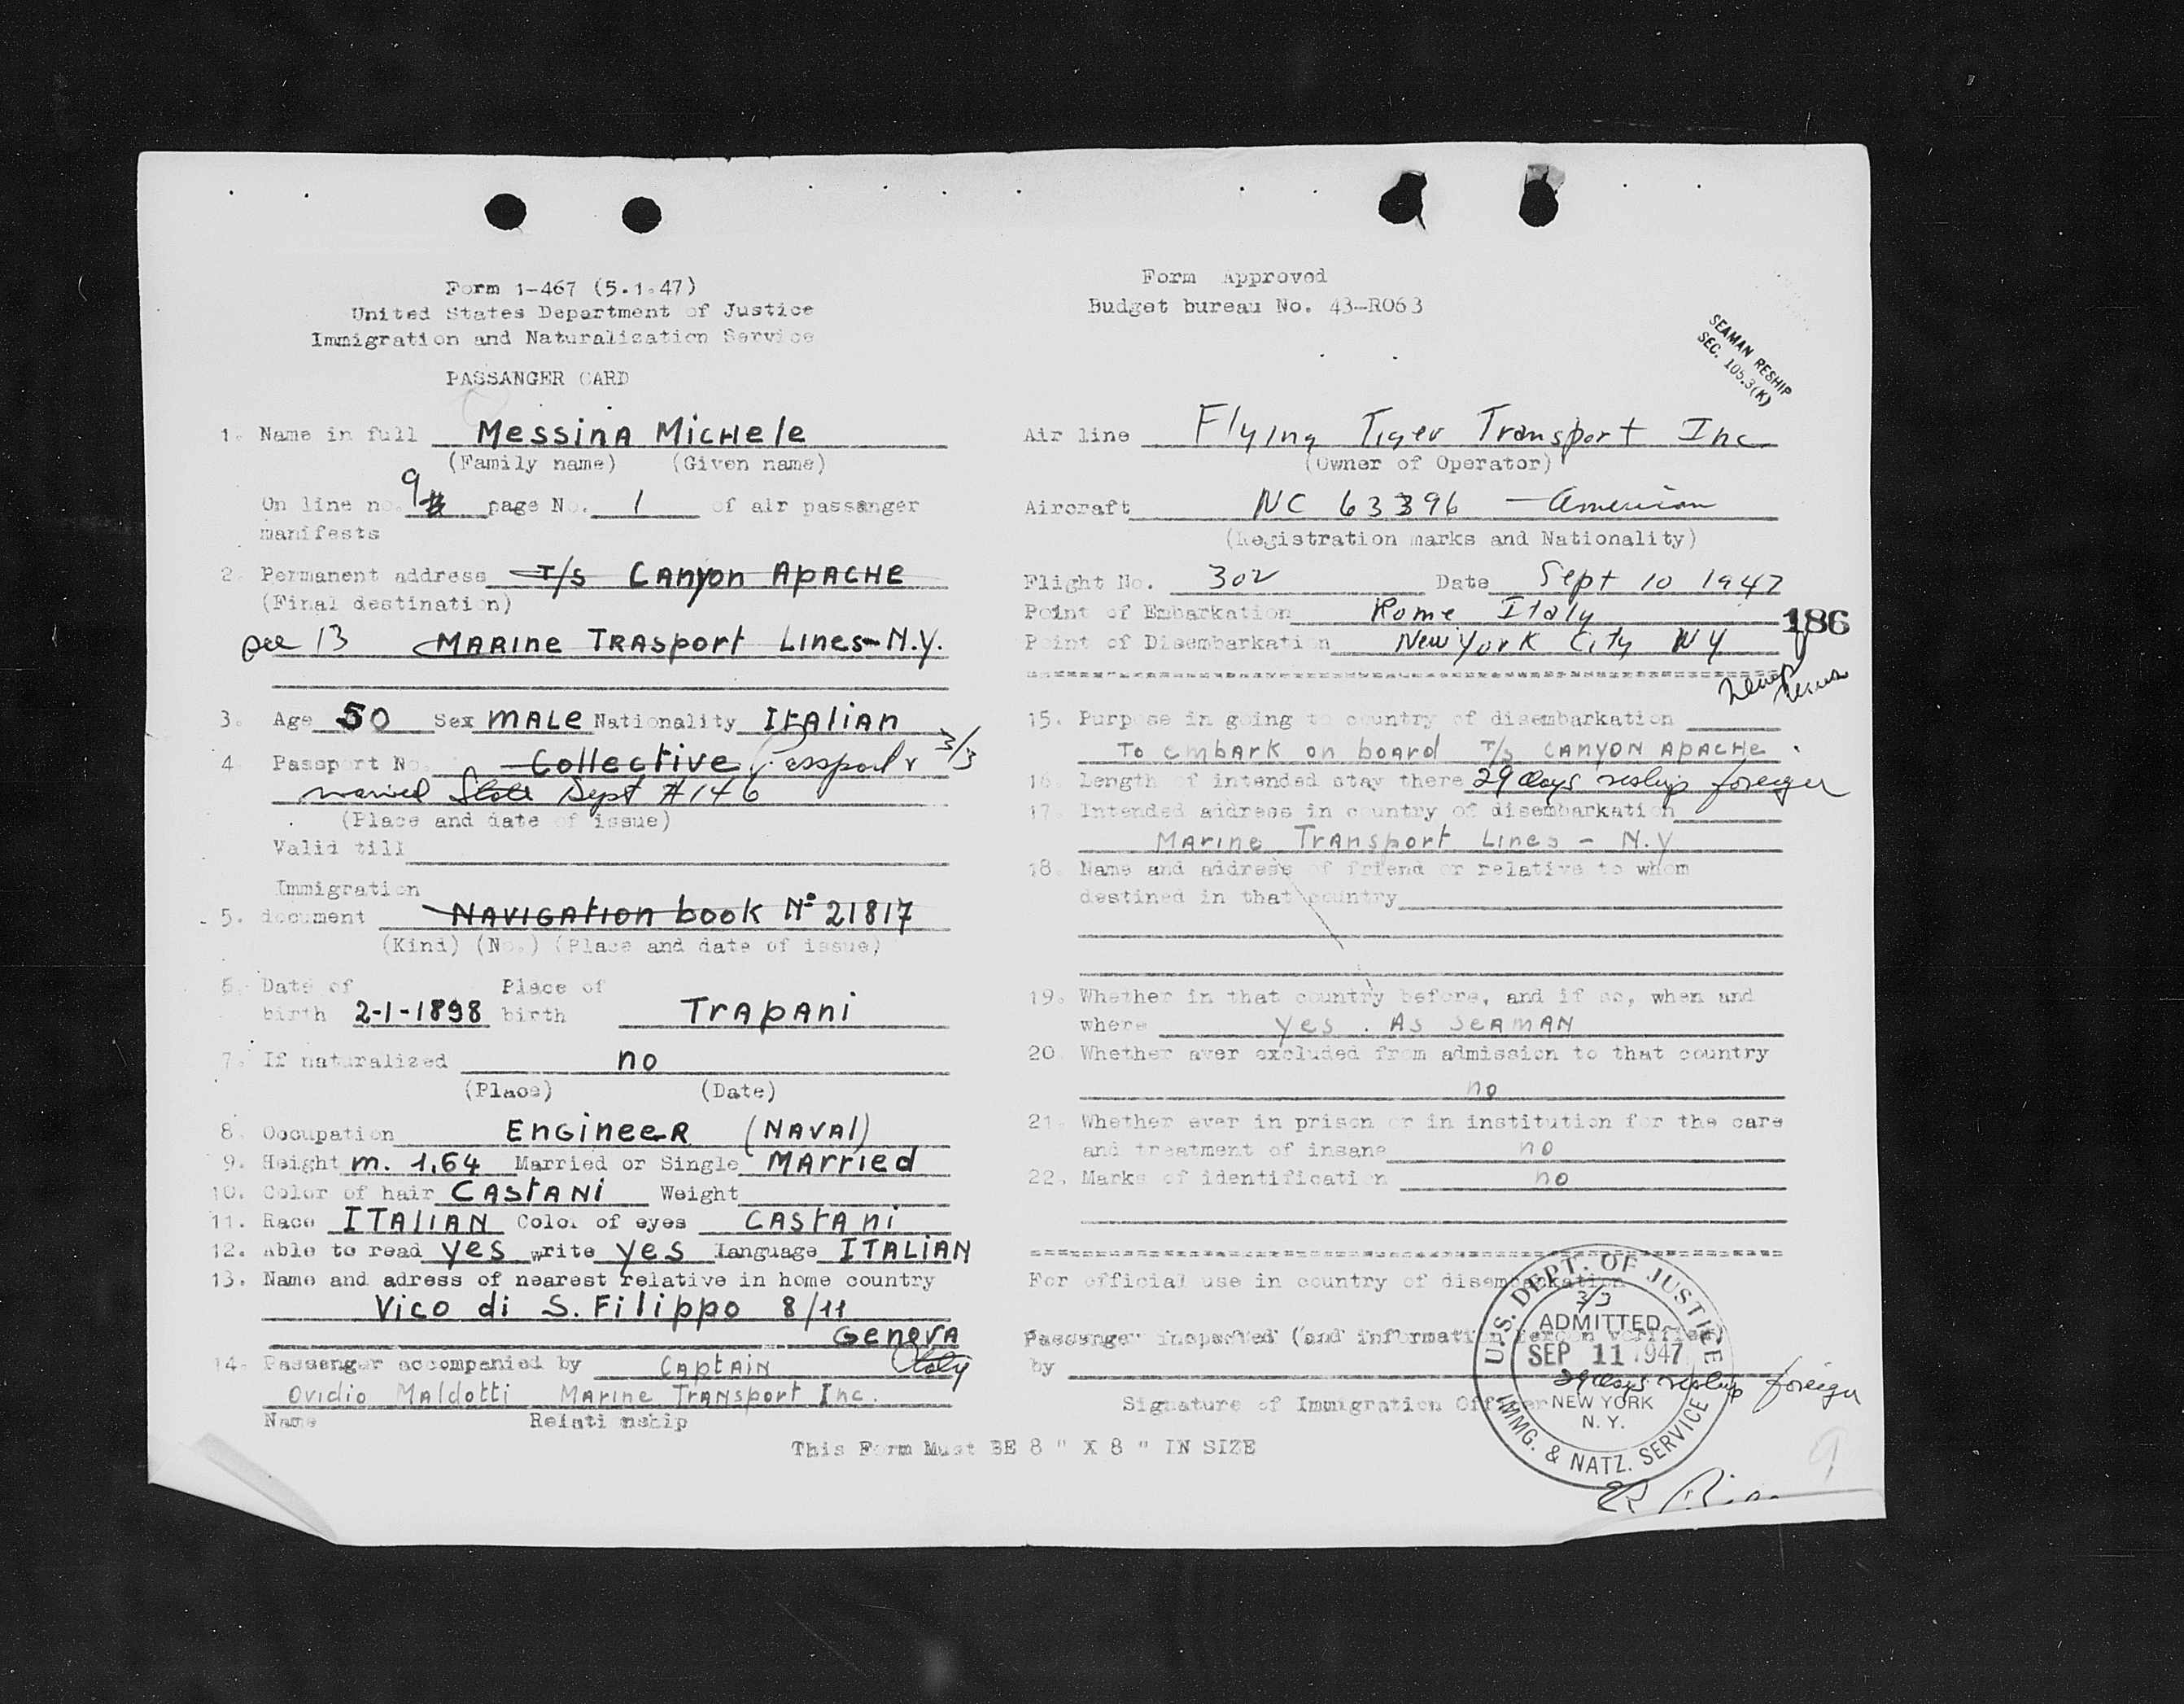 Form 1-467 (5.1.47)
United States Department of Justice
Immigration and Naturalization Service
PASSANGER CARD
1. Name in full Messina Michele
(Family name) (Given name)
On line no. 9 page No. 1 of air passenger
manifests
2. Permanent address T/S Canyon Apache
(Final destination)
see 13 Marine Trasport Lines - N.Y.
3. Age 50 Sex male Nationality Italian
4. Passport No. Collective Passport 3/3
waived State Dept # 146
(Place and date of issue)
Valid till
Immigration
5. document Navigation book N° 21817
(Kind) (No.) (Place and date of issue)
6. Date of Place of
birth 2-1-1898 birth Trapani
7. If naturalized no
(Place) (Date)
8. Occupation Engineer (Naval)
9. Height m. 1,64 Married or Single Married
10. Color of hair Castani Weight
11. Race Italian Color of eyes Castani
12. Able to read yes write yes language Italian
13. Name and adress of nearest relative in home country
Vico di S. Filippo 8/11
Genova
Italy
14. Passenger accompanied by Captain
Ovidio Maldotti Marine Transport Inc.
Name Relationship
Form Approved
Budget bureau No. 43-R063
SEAMAN RESHIP
SEC. 105.3(K)
Air line Flying Tiger Transport Inc
(Owner of Operator)
Aircraft NC 63396 - American
(Registration marks and Nationality)
Flight No. 302 Date Sept 10 1947
Point of Embarkation Rome Italy
186
Point of Disembarkation New York City NY
15. Purpose in going to country of disembarkation
To embark on board T/s Canyon Apache.
16. Length of intended stay there 29 days reship foreign
17. Intended address in country of disembarkation
Marine Transport Lines - N.Y
18. Name and address of friend or relative to whom
destined in that country
19. Whether in that country before, and if so, when and
where yes. As seaman
20. Whether aver excluded from admission to that country
no
21. Whether ever in prison or in institution for the care
and treatment of insane no
22. Marks of identification no
For official use in country of disembarkation
Passenger inspected (and information hereon verified)
by
Signature of Immigration Officer
U.S. DEPT. OF JUSTICE
3/3
ADMITTED
SEP 11 1947
29 days reship foreign
NEW YORK
N. Y.
IMMG. & NATZ. SERVICE
This Form Must BE 8 " X 8 " IN SIZE
9